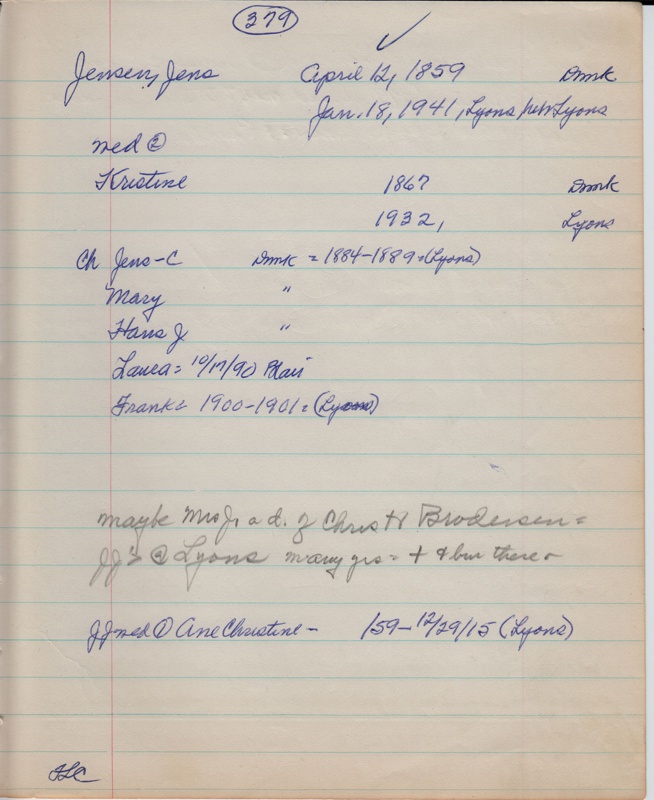 379
Jensen, Jens April 12, 1859 Dmk
Jan. 18, 1941, Lyons Lyons
med ②
Kristine 1867 Dmk
1932, Lyons
Ch Jens-C Dmk = 1884-1889=(Lyons)
Mary "
Hans J "
Laura= 10/17/90 Blair
Frank= 1900-1901=(Lyons)
maybe Mrs J, a d. of Chris H Brodersen=
JJ's @ Lyons many yrs = + & bur there-
JJ med ① Ane Christine- /59-12/29/15 (Lyons)